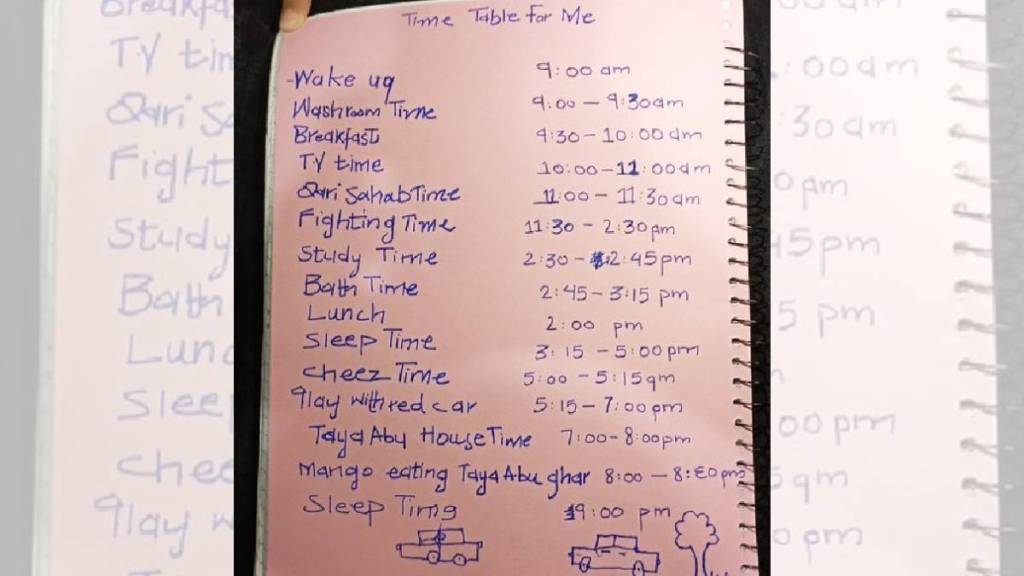 Time Table for Me
-Wake uq 9:00 am
Washroom Time 9:00 - 9:30am
Breakfast 9:30 - 10:00am
TV time 10:00-11:00am
Qari Sahab Time 11:00 - 11:30am
Fighting Time 11:30 - 2:30pm
Study Time 2:30 - 2:45pm
Bath Time 2:45 - 3:15 pm
Lunch 2:00 pm
Sleep Time 3:15 - 5:00pm
cheez Time 5:00 - 5:15qm
qlay with red car 5:15 - 7:00pm
Taya Abu House Time 7:00-8:00pm
mango eating Taya Abu ghar 8:00 - 8:30pm
Sleep Time 9:00 pm